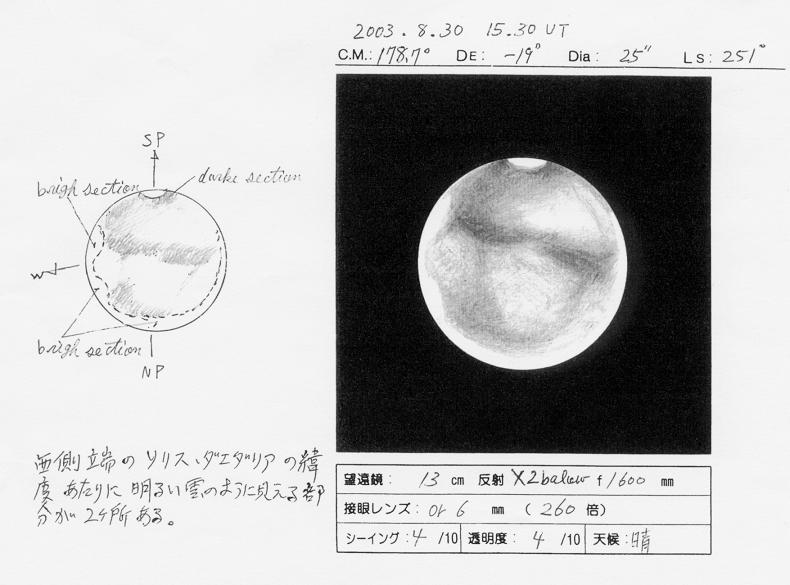 2003.8.30 15.30 UT
C.M.: 178.7° DE: -19° Dia: 25" Ls: 251°
SP
brigh section
darke section
W
brigh section
NP
西側立端のソリス、ダエダリアの緯
度あたりに明るい雲のように見える部
分が2ヶ所ある。
望遠鏡: 13 cm 反射 X2balow f1600 mm
接眼レンズ: or 6 mm (260 倍)
シーイング: 4 /10 透明度: 4 /10 天候: 晴